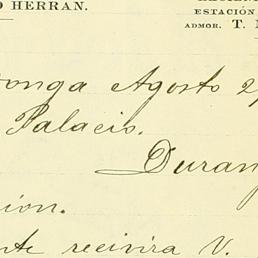 O HERRAN.
ESTACIÓN
ADMOR. T.
onga Agosto 2
Palacio.
Duran
ion.
nte recivira V.